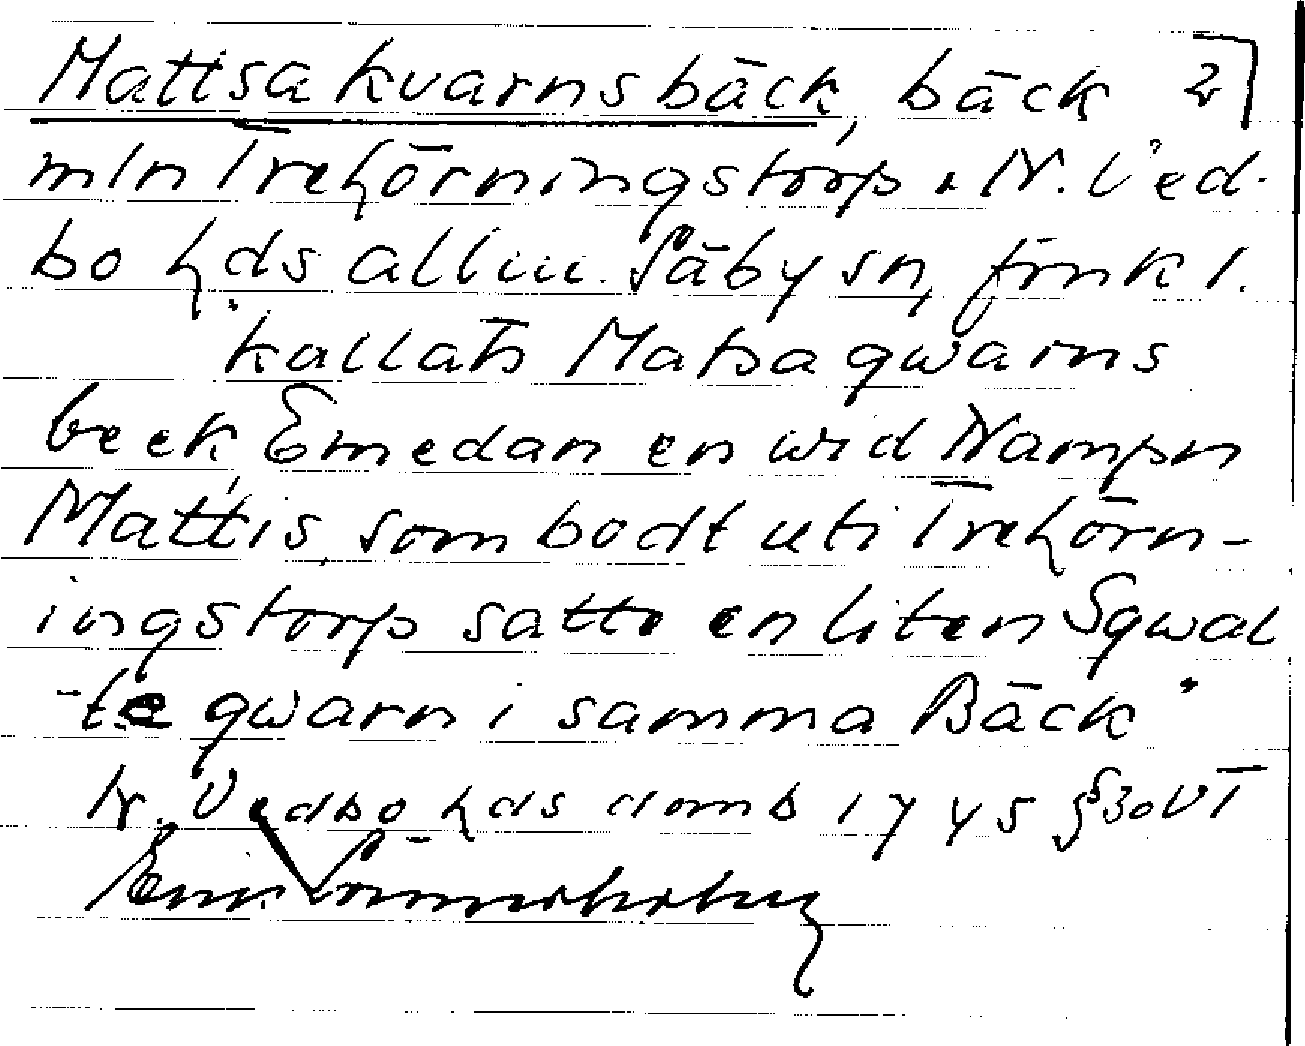 Mattsakvarnsbäck, bäck 2
mln Trehörningstorp o N. Ved-
bo hds allm. Säby sn, Jönk l.
"kallats Matsaqwarns
beck, Emedan en wid Nampn
Mattis, som bodt uti Trehörn-
ingstorp satte en liten Sqwal
-te qwarn i samma Bäck"
N. Vedbo hds domb 1745 § 30 VT